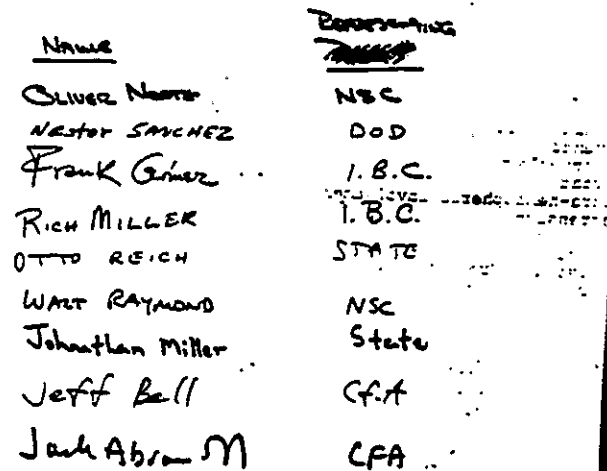 Name Representing
Oliver North NSC
Nestor SANCHEZ DOD
Frank Gómez I.B.C.
RICH MILLER I.B.C.
OTTO REICH STATE
WALT RAYMOND NSC
Johnathan Miller State
Jeff Bell CfA
Jack Abram CFA